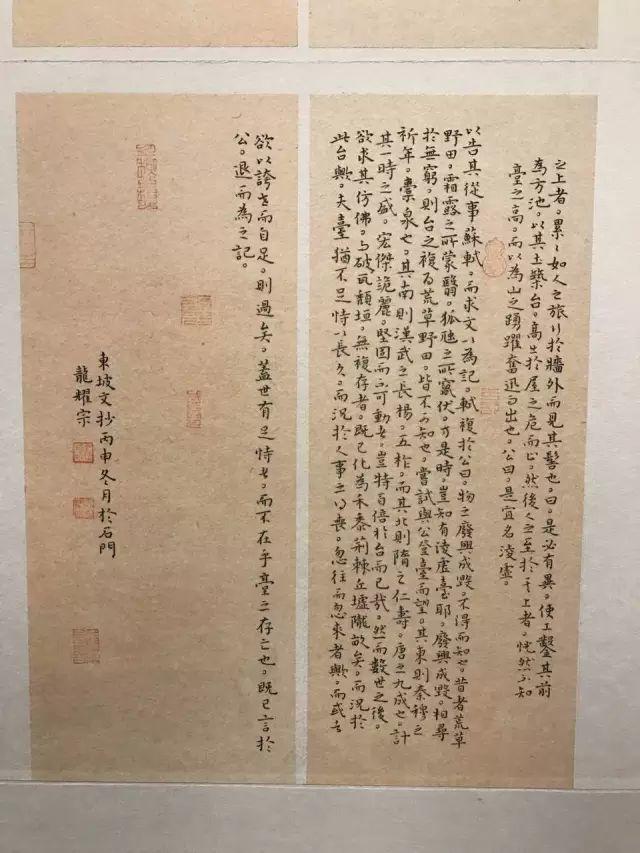 之上者。累々如人之旅行於牆外而見其髻也。曰。是必有異。使工鑿其前
為方池。以其土築台。高出於屋之危而止。然後人之至於其上者。恍然不知
臺之高。而以為山之踴躍奮迅而出也。公曰。是宜名淩虛。
以告其從事蘇軾。而求文以為記。軾複於公曰。物之廢興成毀。不得而知也。昔者荒草
野田。霜露之所蒙翳。狐虺之所竄伏。方是時。豈知有淩虛臺耶。廢興成毀。相尋
於無窮。則台之複為荒草野田。皆不可知也。嘗試與公登臺而望。其東則秦穆之
祈年。橐泉也。其南則漢武之長楊。五柞。而其北則隋之仁壽。唐之九成也。計
其一時之盛。宏傑詭麗。堅固而不可動者。豈特百倍於台而已哉。然而數世之後。
欲求其仿佛。而破瓦頹垣。無複存者。既已化為禾黍荊棘丘墟隴畝矣。而況於
此台歟。夫臺猶不足恃以長久。而況於人事之得喪。忽往而忽來者歟。而或者
欲以誇世而自足。則過矣。蓋世有足恃者。而不在乎臺之存亡也。既已言於
公。退而為之記。
東坡文抄丙申冬月於石門
龍耀宗